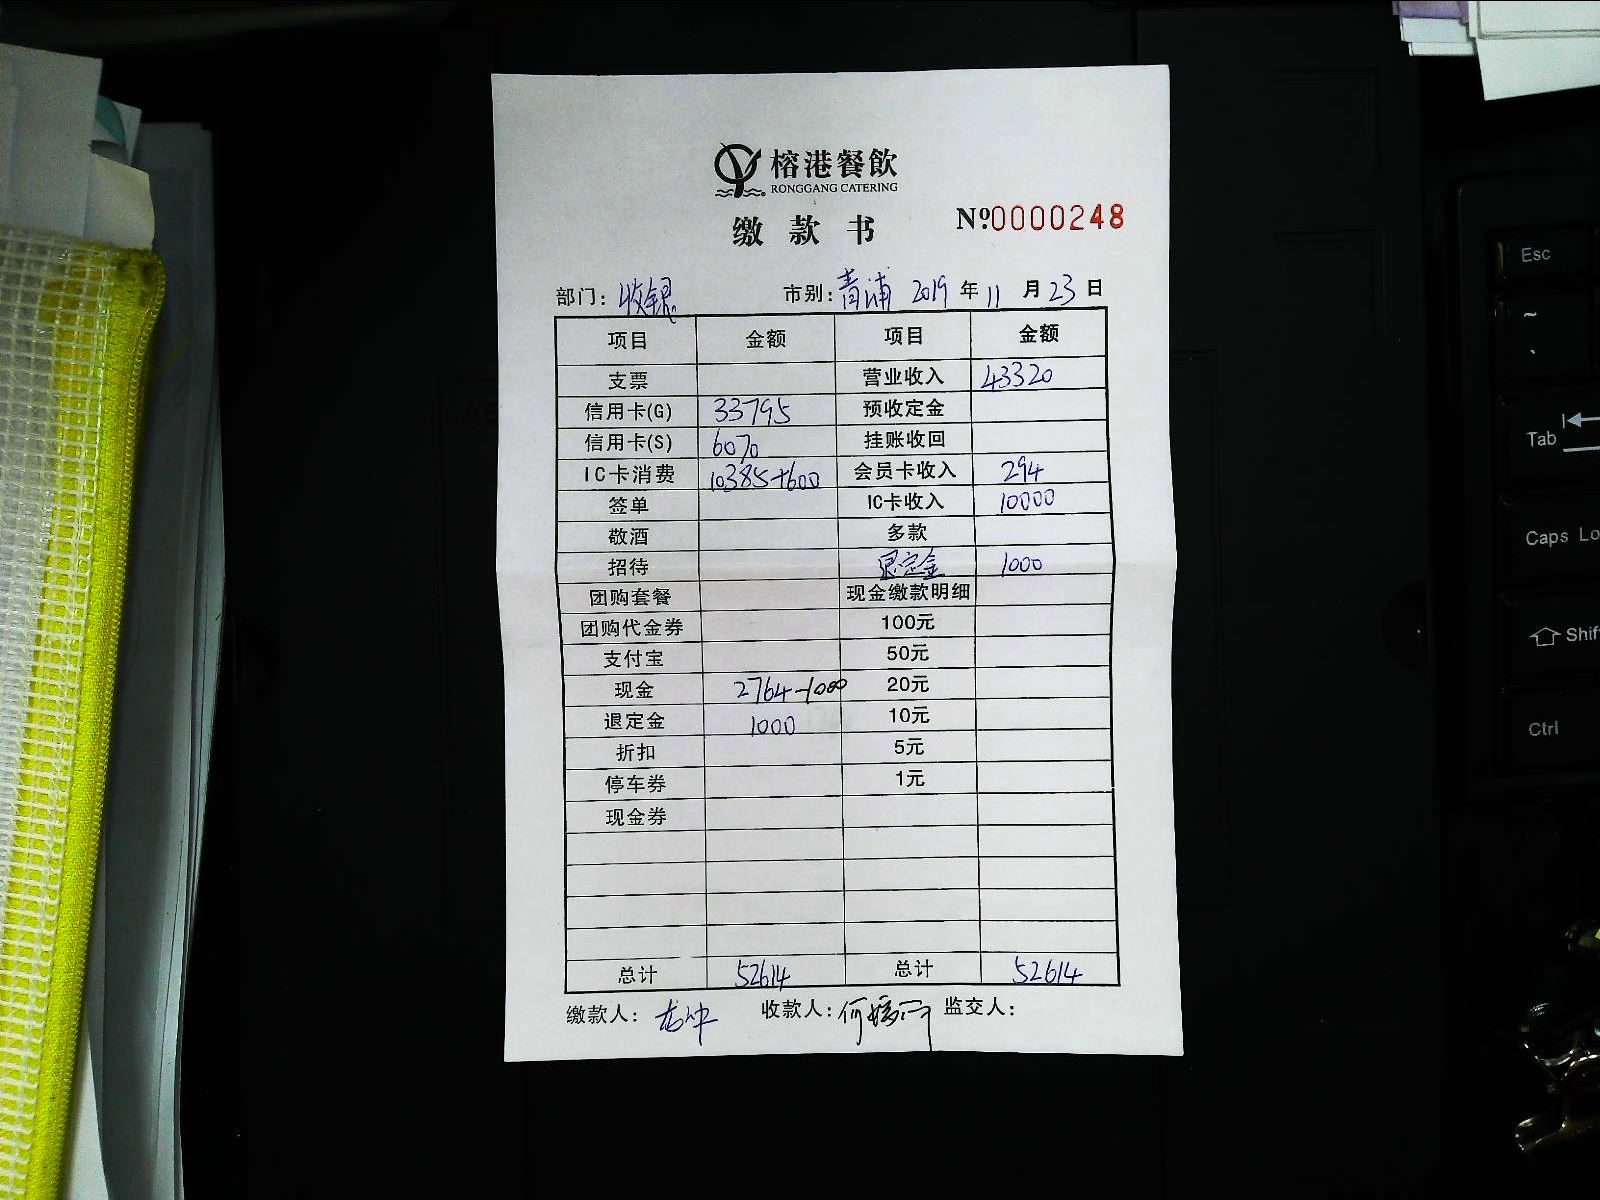 榕港餐飲
RONGGANG CATERING
缴款书 №0000248
部门：收银 市别：青浦 2019年11月23日
项目 金额 项目 金额
支票 营业收入 43320
信用卡(G) 33795 预收定金
信用卡(S) 6070 挂账收回
IC卡消费 10385+600 会员卡收入 294
签单 IC卡收入 10000
敬酒 多款
招待 退定金 1000
团购套餐 现金缴款明细
团购代金券 100元
支付宝 50元
现金 2764-1000 20元
退定金 1000 10元
折扣 5元
停车券 1元
现金券
总计 52614 总计 52614
缴款人： 收款人：何 监交人：
Esc
~
、
Tab
Caps Lo
Shif
Ctrl